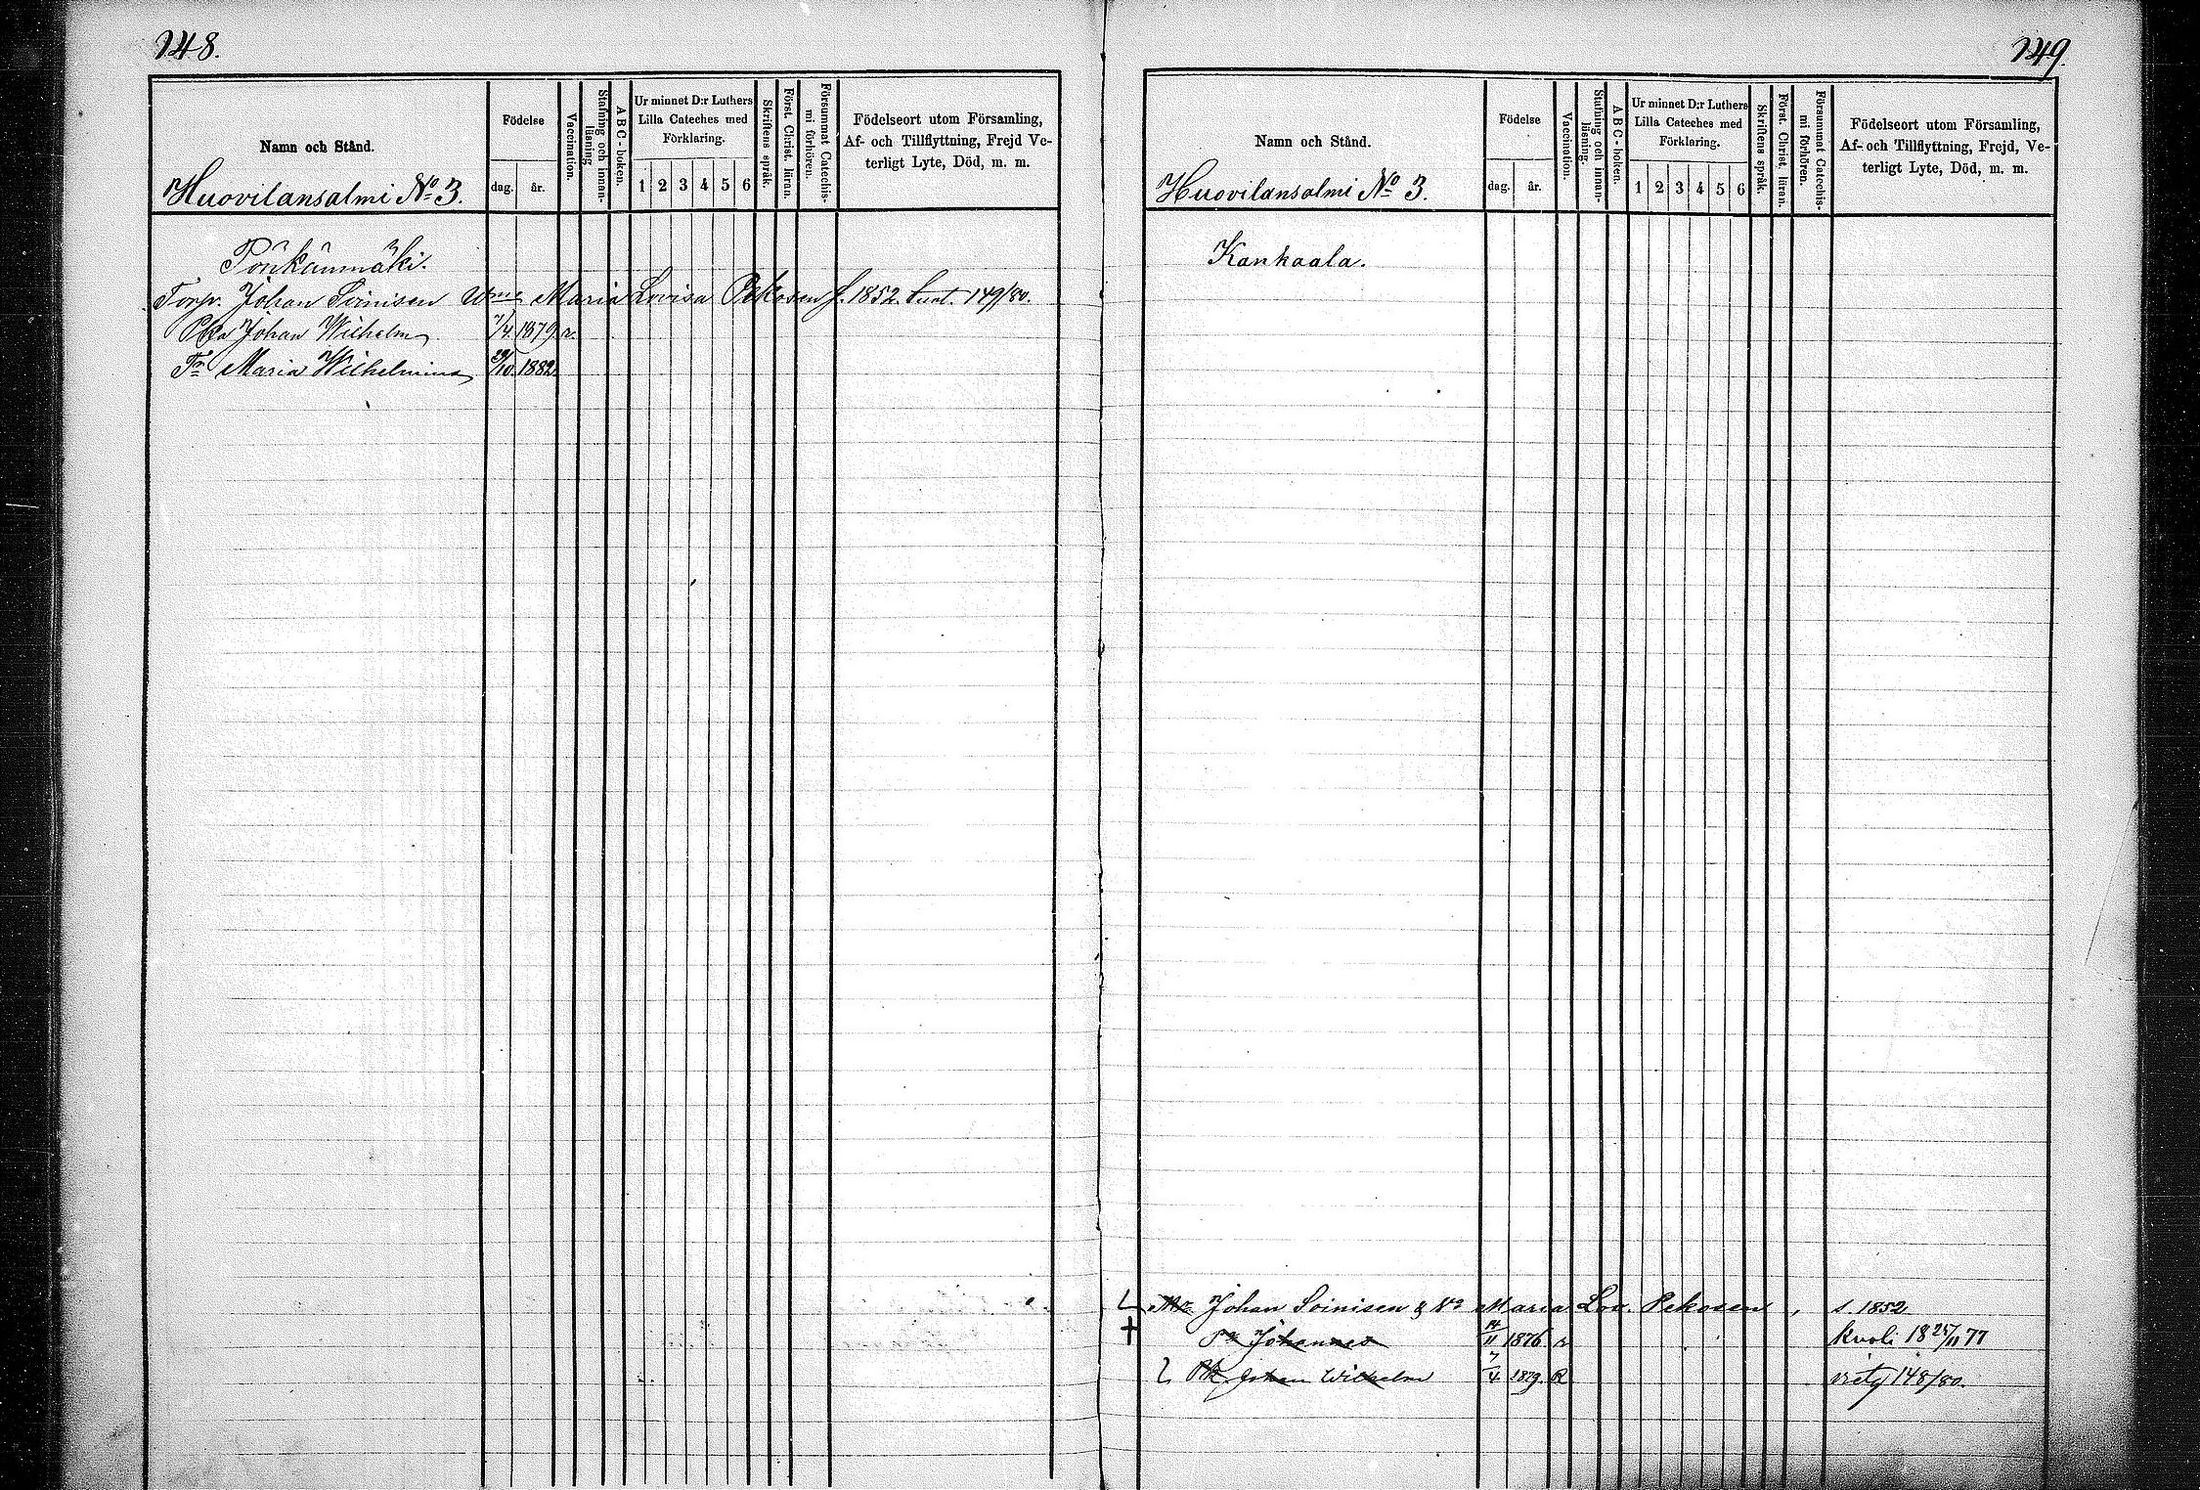 148.
Namn och Stånd.
Huovilansalmi No 3.
Födelse
dag. år.
Vaccination.
Stafning och innan-
läsning
ABC-boken.
Ur minnet D:r Luthers
Lilla Cateches med
Förklaring.
1 2 3 4 5 6
Skriftens språk.
Först. Christ. läran.
Försummat Catechis-
mi förhören.
Födelseort utom Församling,
Af- och Tillflyttning, Frejd Ve-
terligt Lyte, Död, m. m.
Pönkänmäki.
Torp. Johan Soinisen Maria Lovisa Pekosen f. 1852. 149/80.
Johan Wilhelm 7/4 1879 r.
Tr Maria Wilhelmina 29/10. 1882.
149.
Namn och Stånd.
Huovilansalmi No 3.
Födelse
dag. år.
Vaccination.
Stafning och innan-
läsning.
ABC-boken.
Ur minnet D:r Luthers
Lilla Cateches med
Förklaring.
1 2 3 4 5 6
Skriftens språk.
Först. Christ. läran.
Försummat Catechis-
mi förhören.
Födelseort utom Församling,
Af- och Tillflyttning, Frejd, Ve-
terligt Lyte, Död, m. m.
Kankaala.
Johan Soinisen & Maria Lov. Pekosen, s. 1852
Johannes 14/11 1876 r kuoli 18 25/11 77
Johan Wilhelm 7/4 1879. R 148/80.